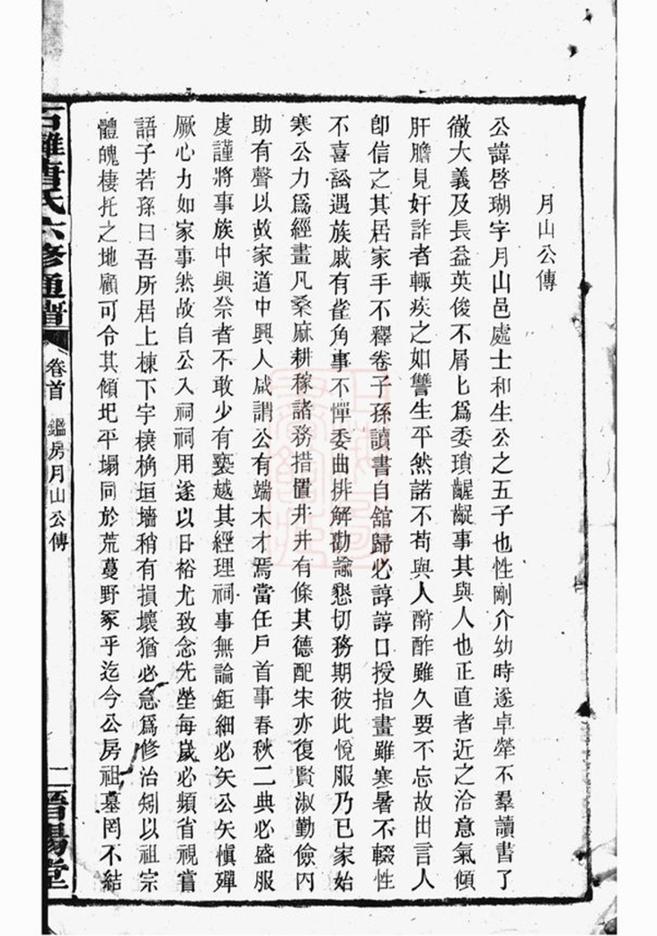 月山公傳
公諱啓瑚字月山邑處士和生公之五子也性剛介幼時遂卓犖不羣讀書了
徹大義及長益英俊不屑匕爲委瑣齷齪事其與人也正直者近之洽意氣傾
肝膽見奸詐者輒疾之如讐生平然諾不苟與人酧酢雖久要不忘故出言人
卽信之其居家手不釋卷子孫讀書自舘歸必諄諄口授指畫雖寒暑不輟性
不喜訟遇族戚有雀角事不憚委曲排解勸諭懇切務期彼此悅服乃已家始
寒公力爲經畫凡桑麻耕稼諸務措置井井有條其德配宋亦復賢淑勤儉內
助有聲以故家道中興人咸謂公有端木才焉當任戶首事春秋二典必盛服
虔謹將事族中與祭者不敢少有褻越其經理祠事無論鉅細必矢公矢愼殫
厥心力如家事然故自公入祠祠用遂以日裕尤致念先塋每歲必頻省視嘗
語子若孫曰吾所居上棟下宇榱桷垣墻稍有損壞猶必急爲修治矧以祖宗
體魄棲托之地顧可令其傾圮平塌同於荒蔓野冢乎迄今公房祖墓罔不結
石灘唐氏六修通譜
卷首
鑑房月山公傳
二
晋陽堂